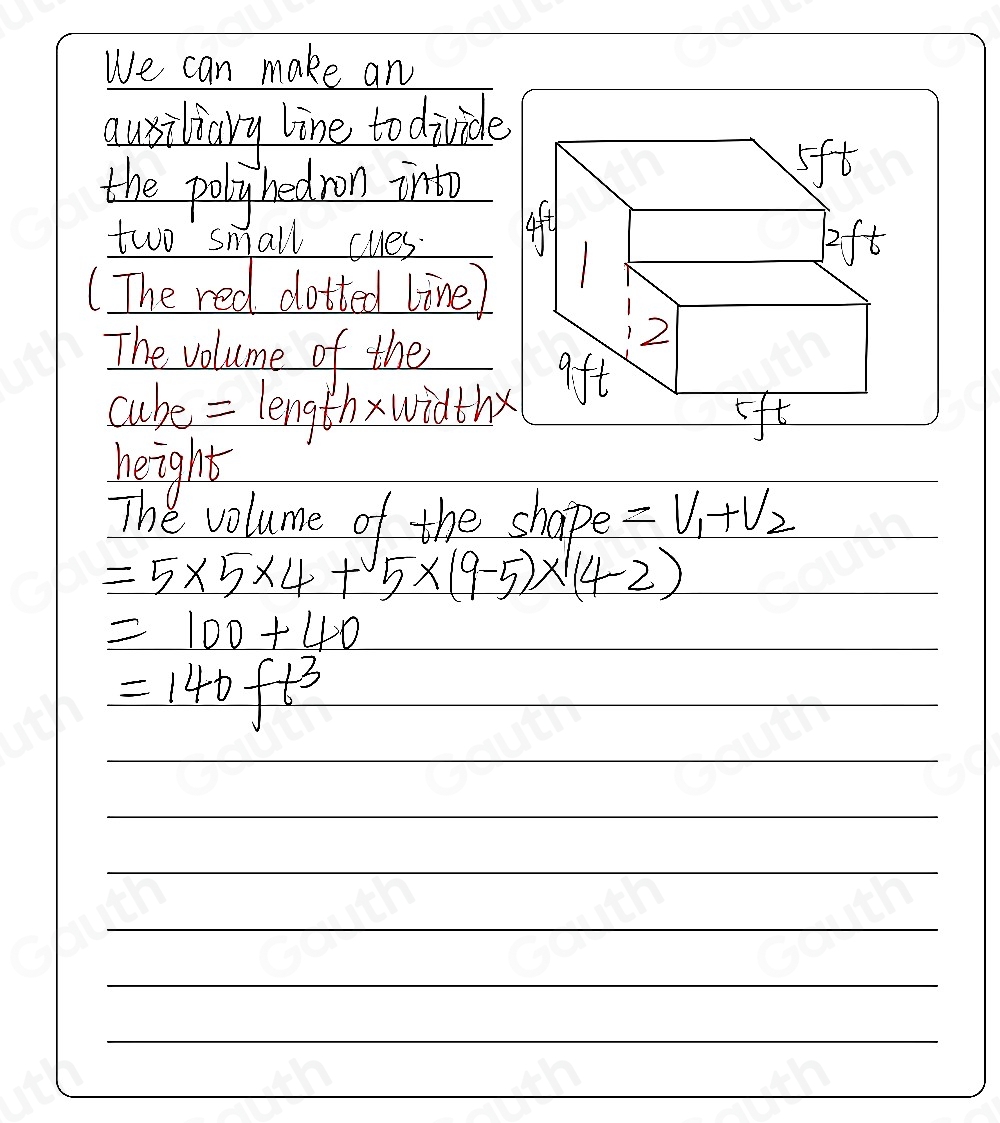 We can make an
auxiliary line to divide
the polyhedron into
two small cues.
(The red dotted line)
The volume of the
cube = length×width×
height
5ft
4ft
2ft
1
2
9ft
5ft
The volume of the shape = V₁+V₂
= 5×5×4 + 5×(9-5)×(4-2)
= 100+40
= 140 ft³
Gauth